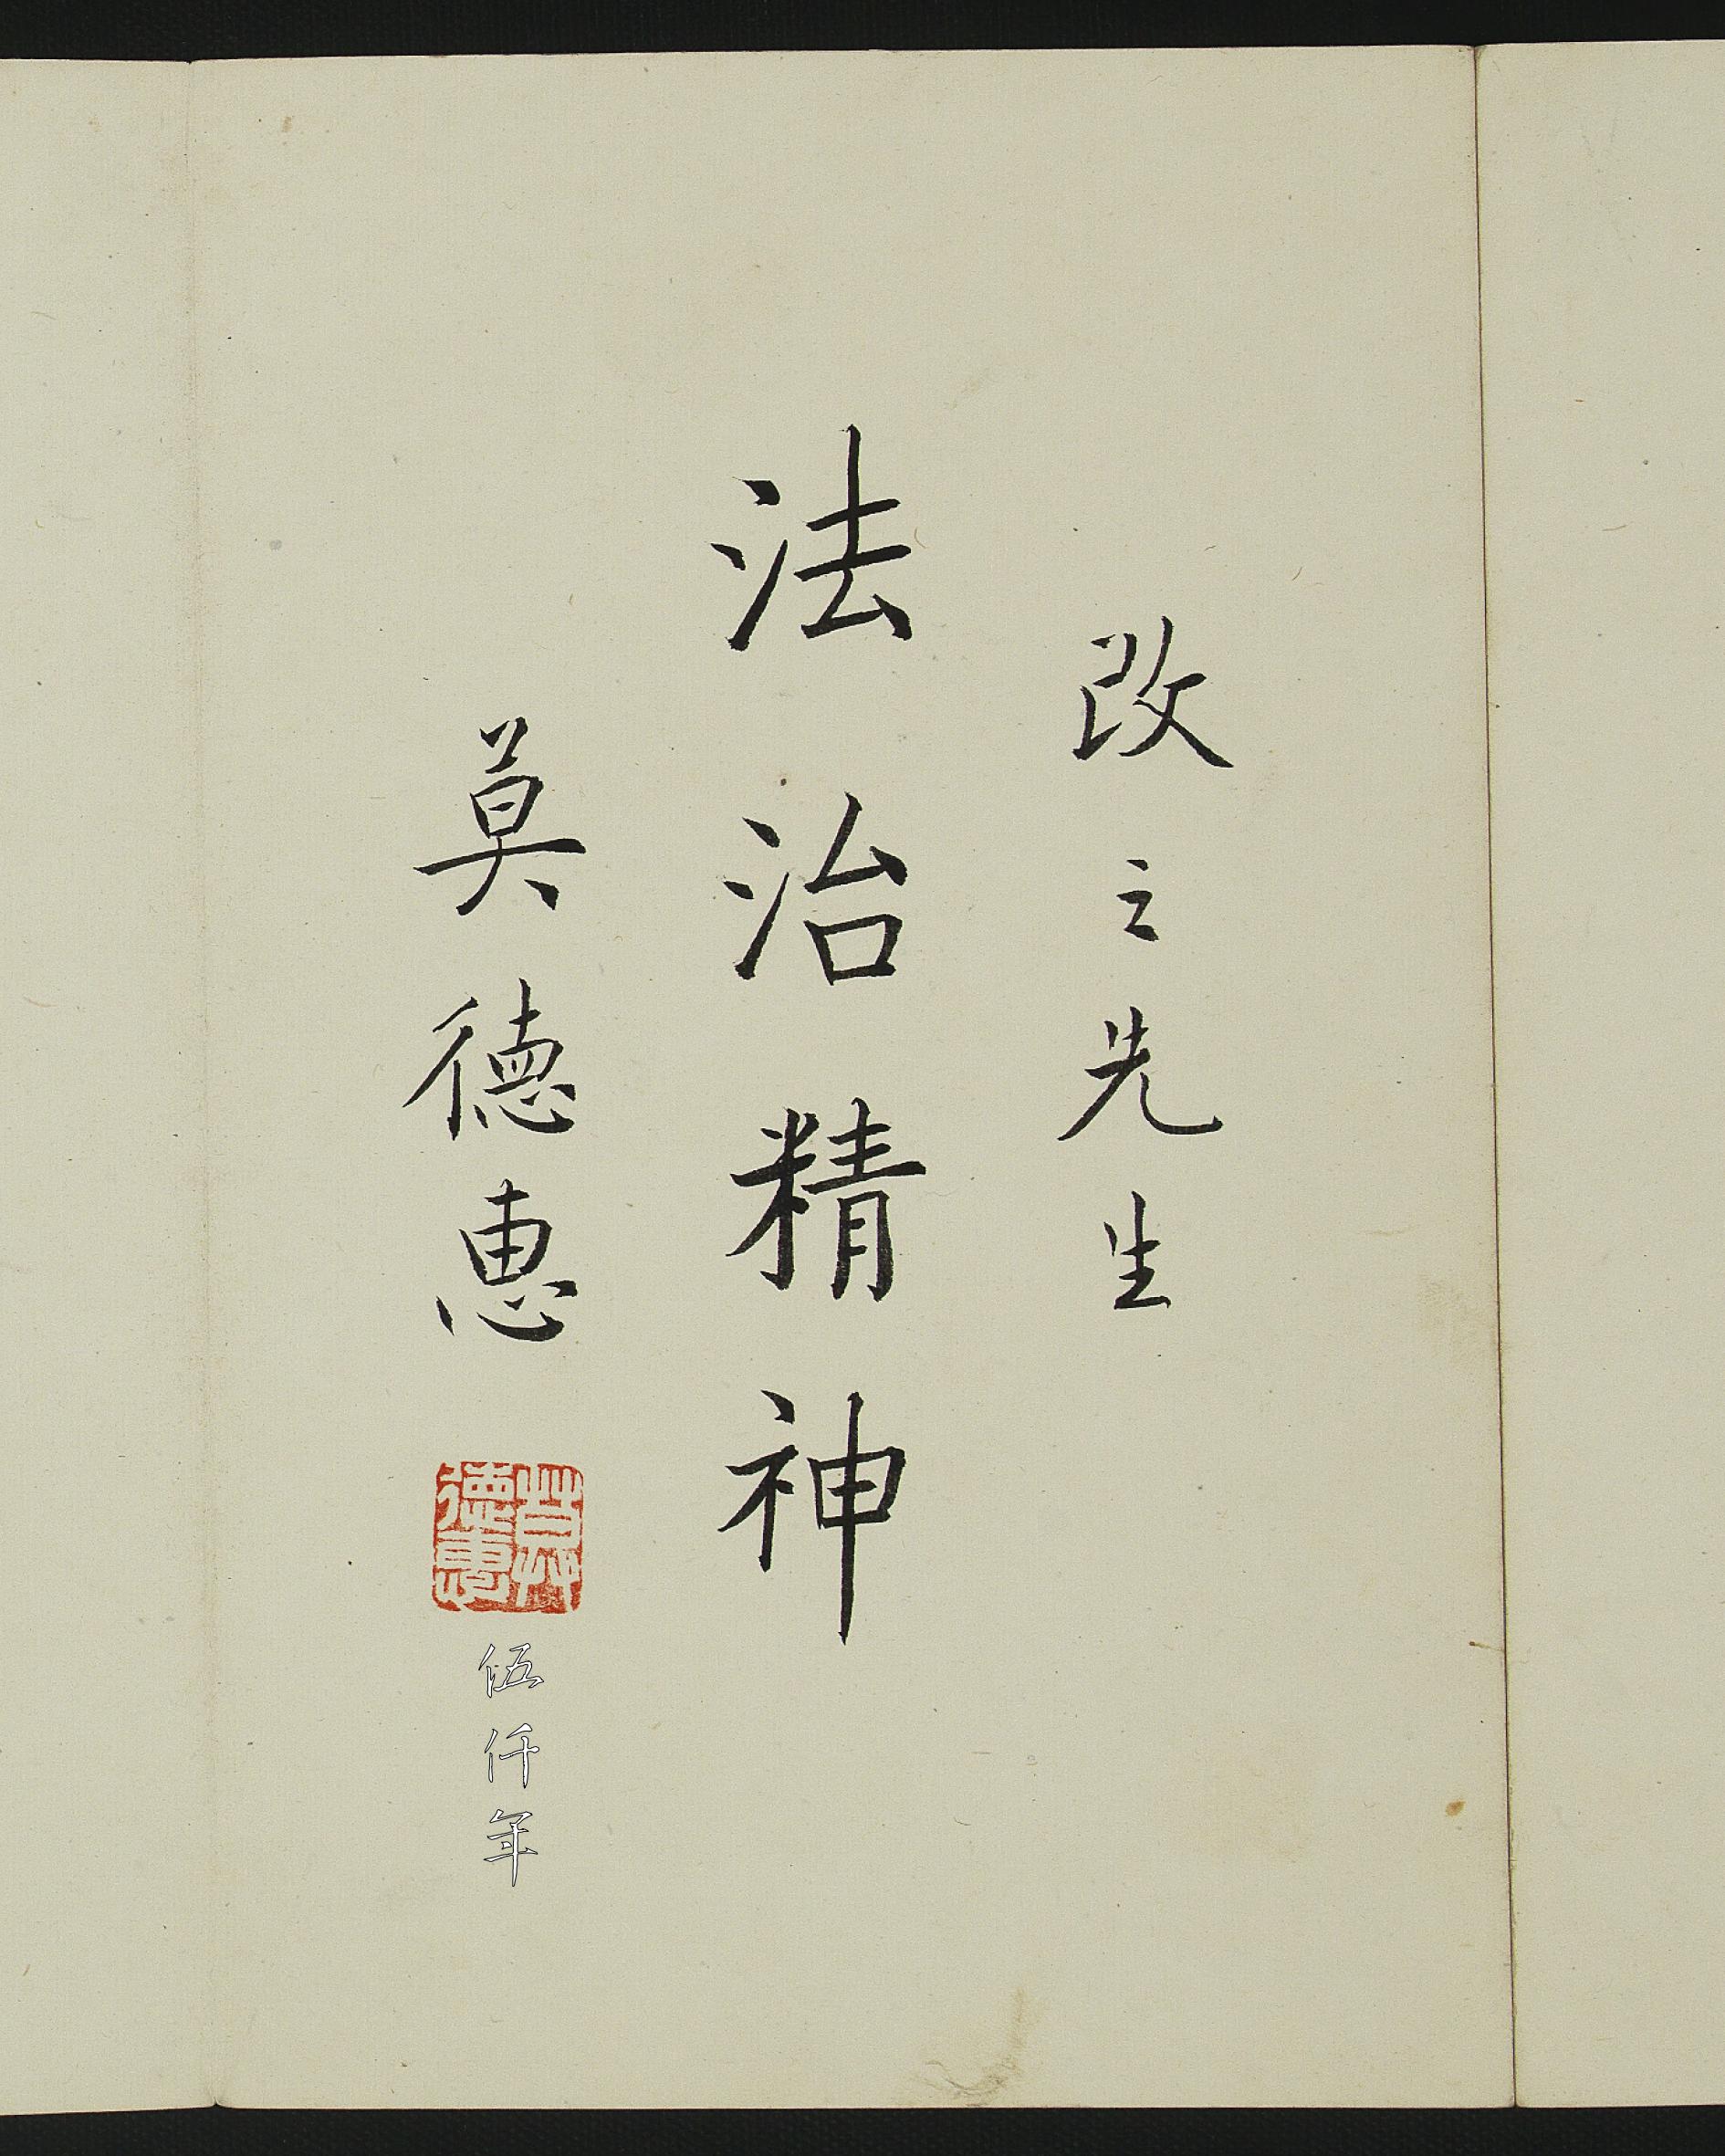 改之先生
法治精神
莫德惠
莫德惠
伍仟年